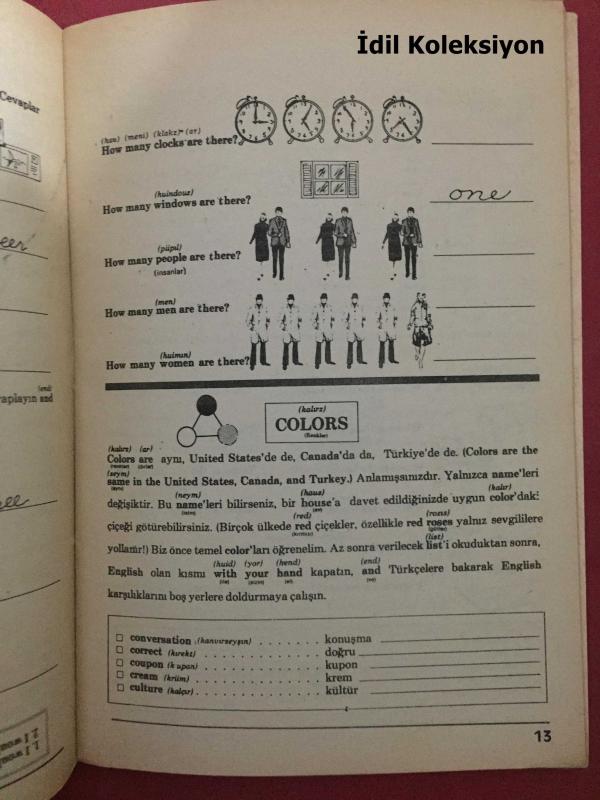 İdil Koleksiyon
Cevaplar
(hau) (meni) (klakz) (ar)
How many clocks are there?
(huindouz)
How many windows are there?
one
(piipıl)
How many people are there?
(insanlar)
(men)
How many men are there?
(huimın)
How many women are there?
(end)
aplayın and
(kalırz)
COLORS
(Renkler)
(kalırz) (ar)
Colors are aynı, United States'de de, Canada'da da, Türkiye'de de. (Colors are the
(renkler) (dırlar)
(seym)
same in the United States, Canada, and Turkey.) Anlamışsınızdır. Yalnızca name'leri
(aynı)
(neym) (haus) (kalır)
değişiktir. Bu name'leri bilirseniz, bir house'a davet edildiğinizde uygun color'daki
(isim) (ev)
(red) (rozıs)
çiçeği götürebilirsiniz. (Birçok ülkede red çiçekler, özellikle red roses yalnız sevgililere
(kırmızı) (güller)
(list)
yollanır!) Biz önce temel color'ları öğrenelim. Az sonra verilecek list'i okuduktan sonra,
(huid) (yor) (hend) (end)
English olan kısmı with your hand kapatın, and Türkçelere bakarak English
(ile) (sizin) (el) (ve)
karşılıklarını boş yerlere doldurmaya çalışın.
conversation (kanvırseyşın) . . . . . . . konuşma
correct (kırekt) . . . . . . . . . . . doğru
coupon (kupan) . . . . . . . . . . . kupon
cream (kriim) . . . . . . . . . . . krem
culture (kalçır) . . . . . . . . . . . kültür
13